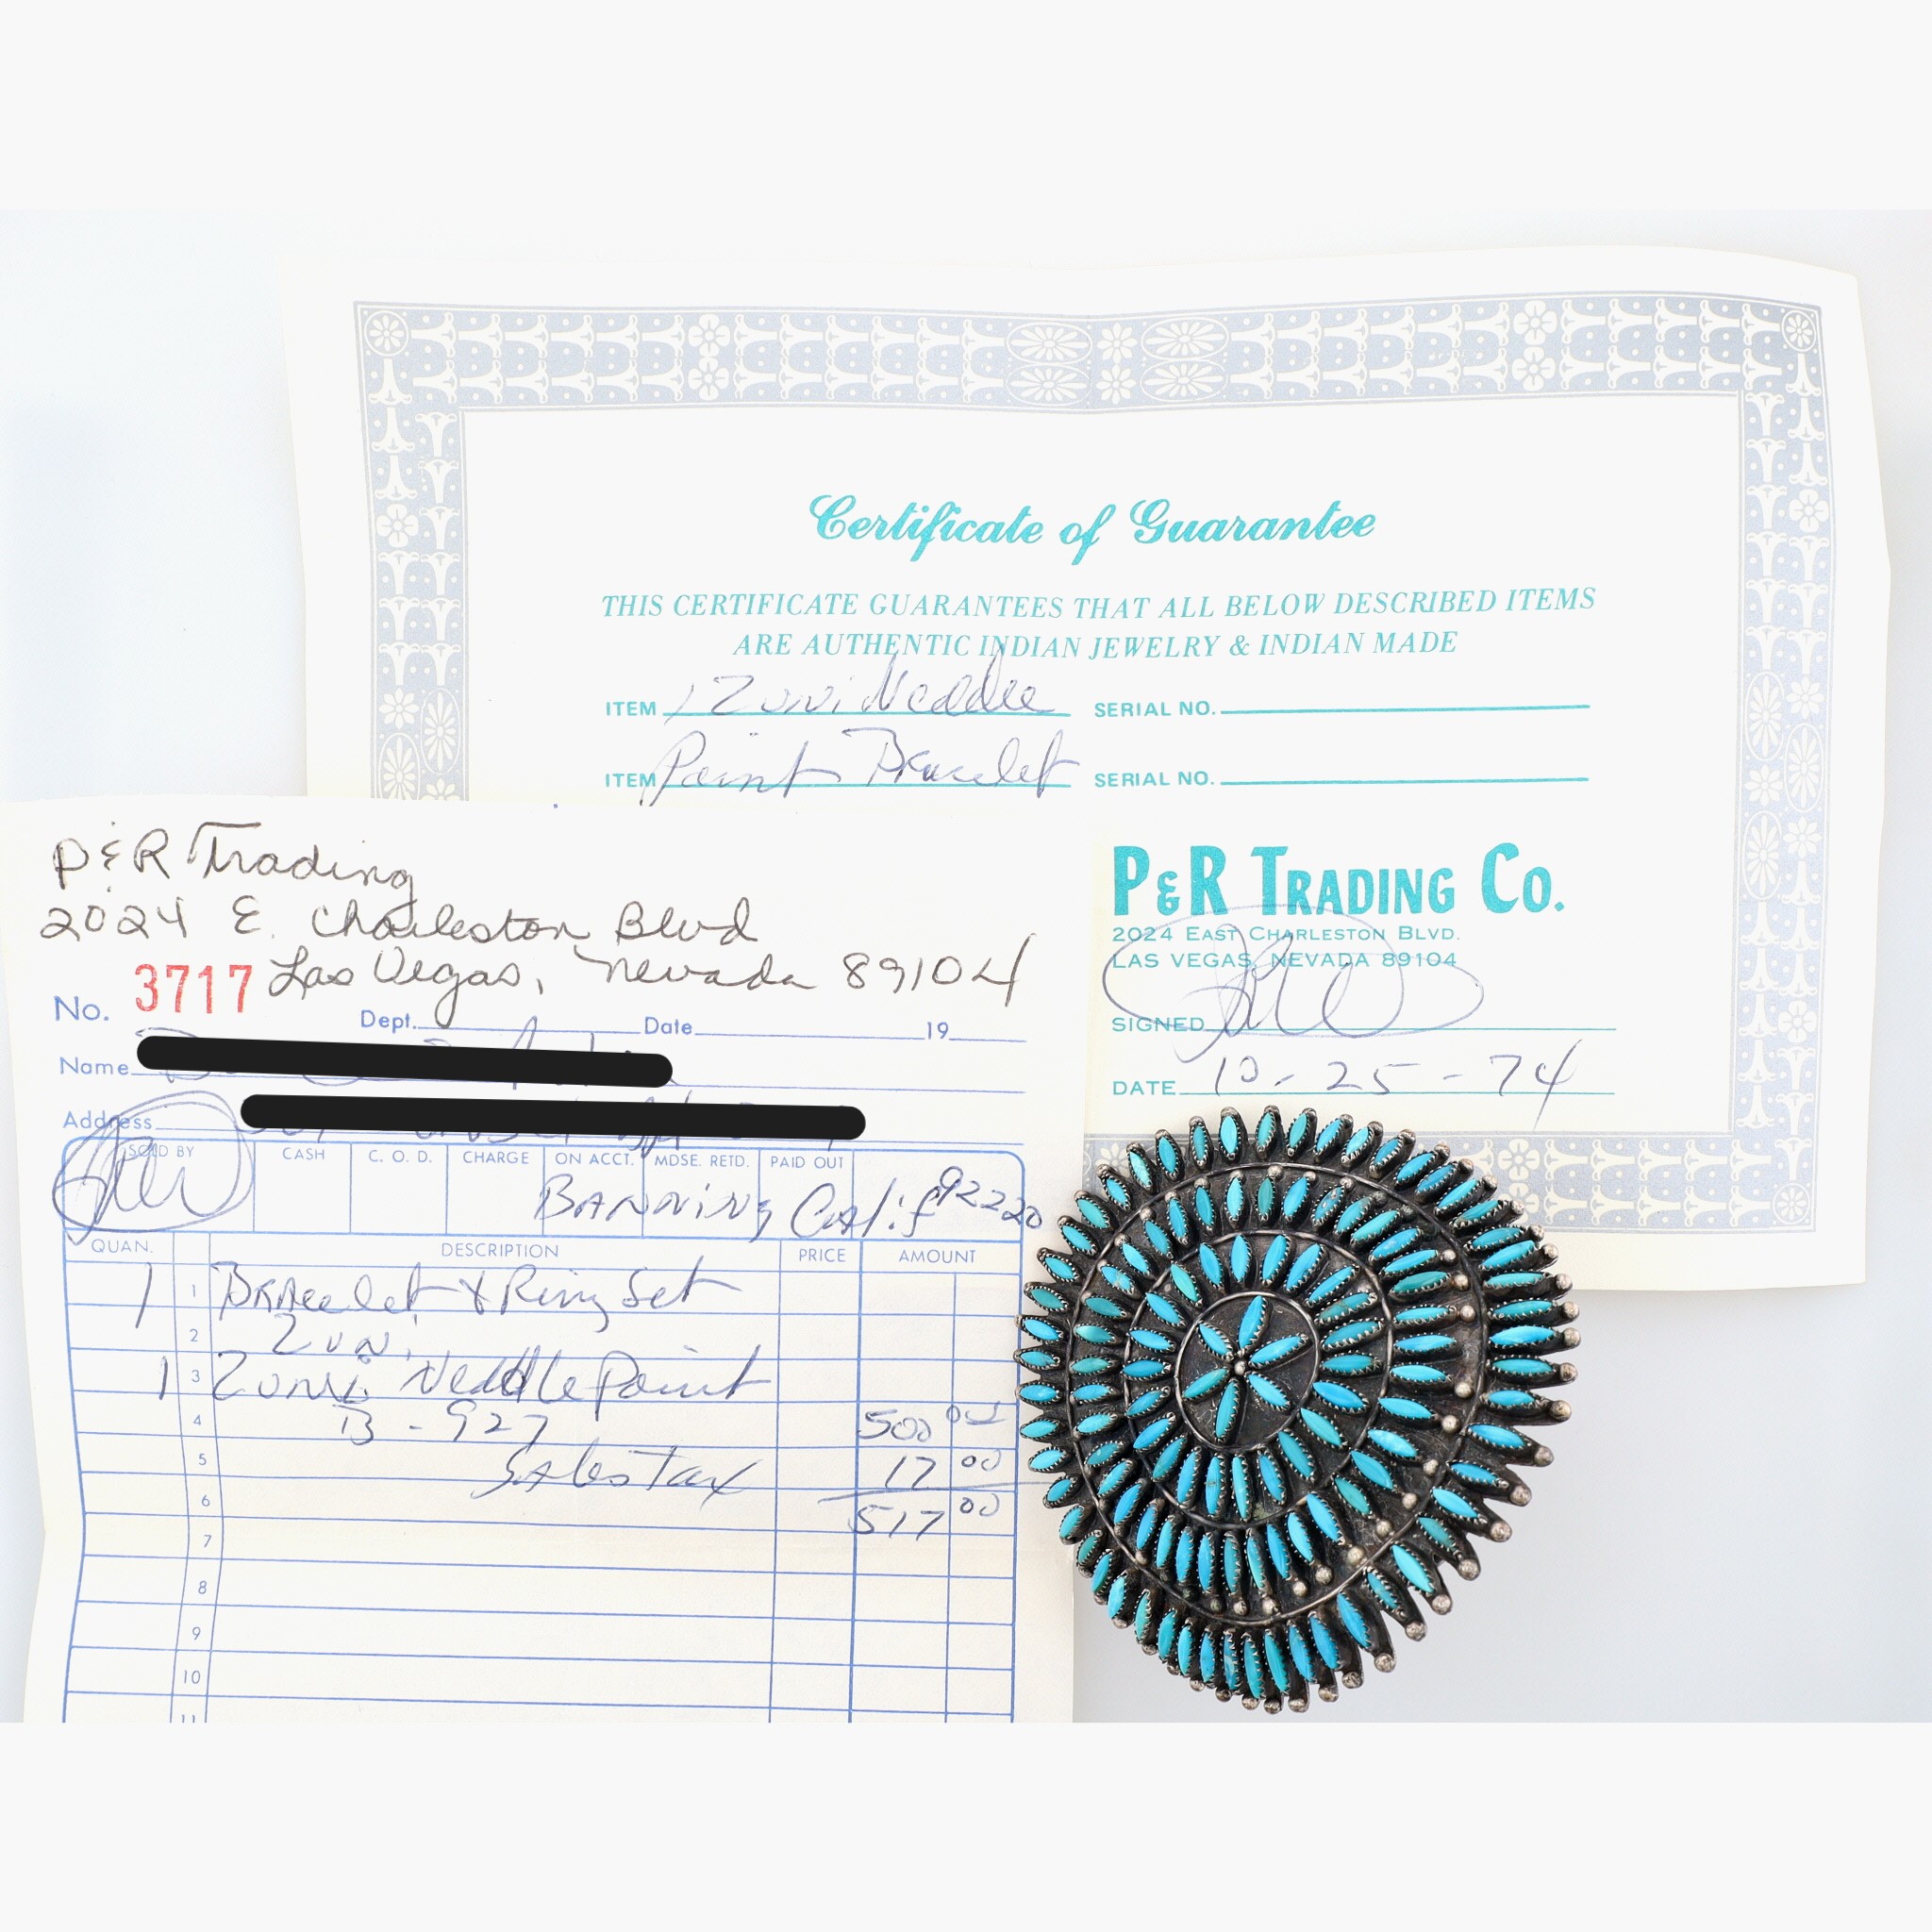 Certificate of Guarantee
THIS CERTIFICATE GUARANTEES THAT ALL BELOW DESCRIBED ITEMS
ARE AUTHENTIC INDIAN JEWELRY & INDIAN MADE
ITEM 1 Zuni Needle SERIAL NO.
ITEM Point Bracelet SERIAL NO.
P&R TRADING CO.
2024 EAST CHARLESTON BLVD.
LAS VEGAS, NEVADA 89104
SIGNED
DATE 10-25-74
P & R Trading
2024 E. Charleston Blvd
Las Vegas, Nevada 89104
No. 3717 Dept. Date 19
Name
Address
SOLD BY CASH C. O. D. CHARGE ON ACCT. MDSE. RETD. PAID OUT
BANNING Calif 92220
QUAN. DESCRIPTION PRICE AMOUNT
1 1 Bracelet & Ring Set
2 Zuni
1 3 Zuni Neddle Point
4 B-927 500 00
5 Sales Tax 17 00
6 517 00
7
8
9
10
11